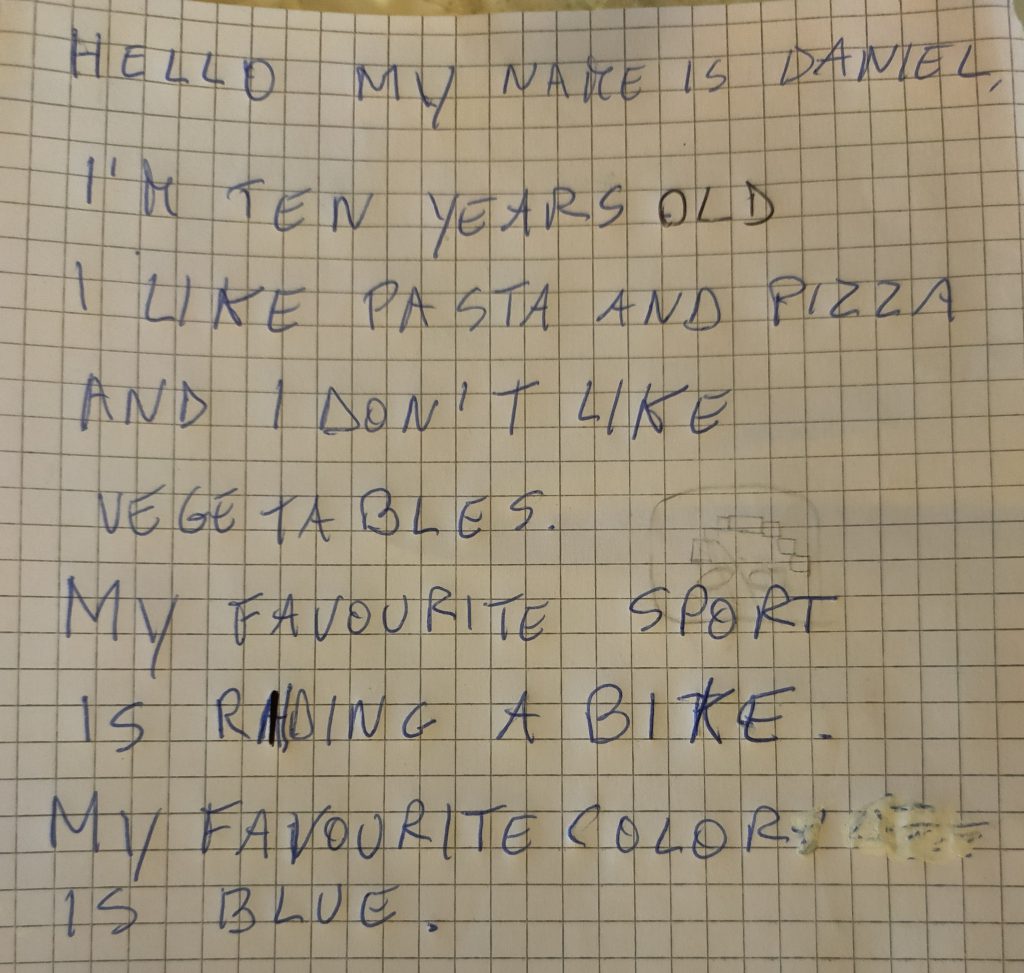 HELLO MY NAME IS DANIEL,
I'M TEN YEARS OLD
I LIKE PASTA AND PIZZA
AND I DON'T LIKE
VEGETABLES.
MY FAVOURITE SPORT
IS RIDING A BIKE.
MY FAVOURITE COLOR
IS BLUE.